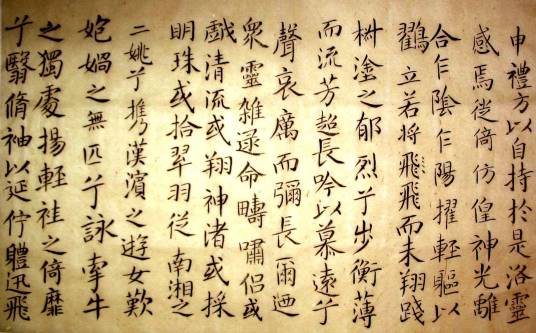 申禮方以自持於是洛靈
感焉徙倚仿偟神光離
合乍陰乍陽擢輕軀以
鸛立若將飛飛而未翔踐
椒塗之郁烈兮步衡薄
而流芳超長吟以慕遠兮
聲哀厲而彌長爾迺
衆靈雜遝命疇嘯侶或
戲清流或翔神渚或採
明珠或拾翠羽從南湘之
二姚兮携漢濱之遊女歎
媧之無匹兮詠牽牛
之獨處揚輕袿之倚靡
兮翳脩袖以延佇體迅飛